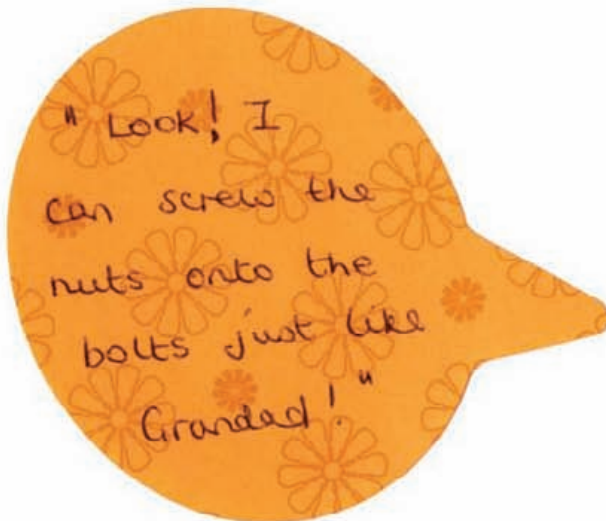 " Look! I
can screw the
nuts onto the
bolts just like
Grandad!"